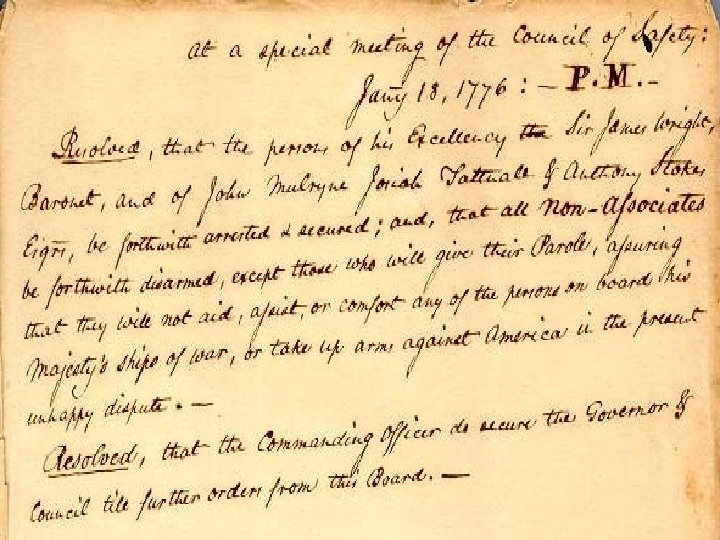 At a special meeting of the Council of Safety:
Jany 18, 1776: — P.M. —
Resolved, that the persons of his Excellency the Sir James Wright,
Baronet, and of John Mulryne Josiah Tattnall & Anthony Stokes
Esqrs, be forthwith arrested & secured; and, that all non-Associates
be forthwith disarmed, except those who will give their Parole, assuring
that they will not aid, assist, or comfort any of the persons on board his
Majesty's ships of war, or take up arms against America in the present
unhappy dispute. —
Resolved, that the Commanding Officer do secure the Governor &
Council till further orders from this Board. —